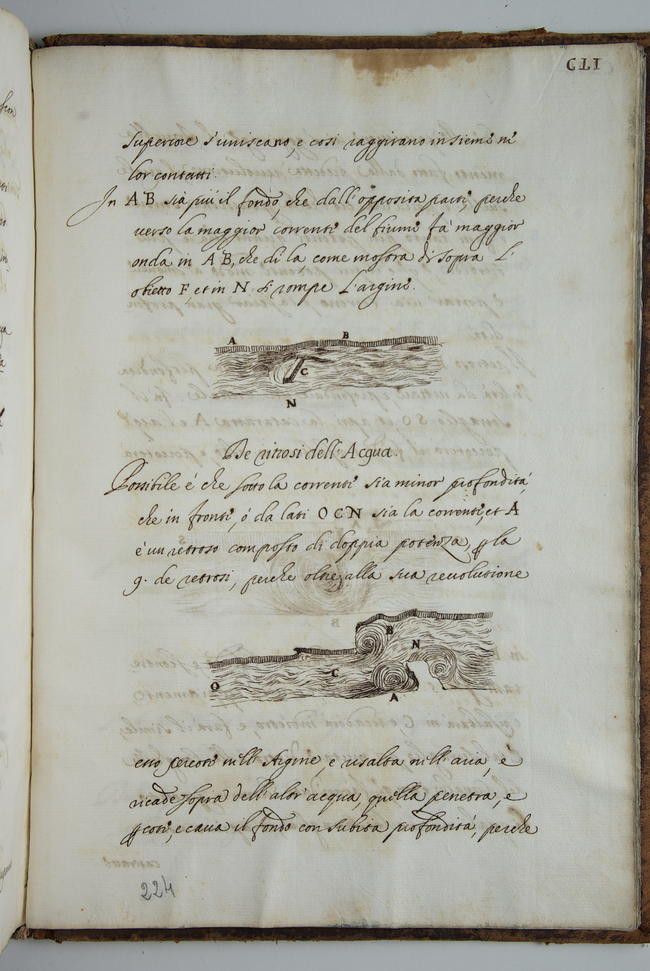 CLI
superiore s'uniscano, e così raggirano insieme ne
lor contatti.
In A B sia più il fondo, che dall'opposita parte, perche
verso la maggior corrente del fiume fa maggior
onda in A B, che di la, come mostra di sopra l'
obietto F, et in N si rompe l'argine.
A B
C
N
De ritrosi dell'Acqua.
Possibile è che sotto la corrente sia minor profondità,
che in fronte, ò da lati O C N sia la corrente, et A
è un retroso composto di doppia potenza, la
9. de retrosi, perche oltre alla sua revolusione
B
N
C
O
A
esso percote nell'Argine, e risalta nell'aria, e
ricade sopra dell'altr'acqua, quella penetra, e
, e cava il fondo con subita profondità, perche
224